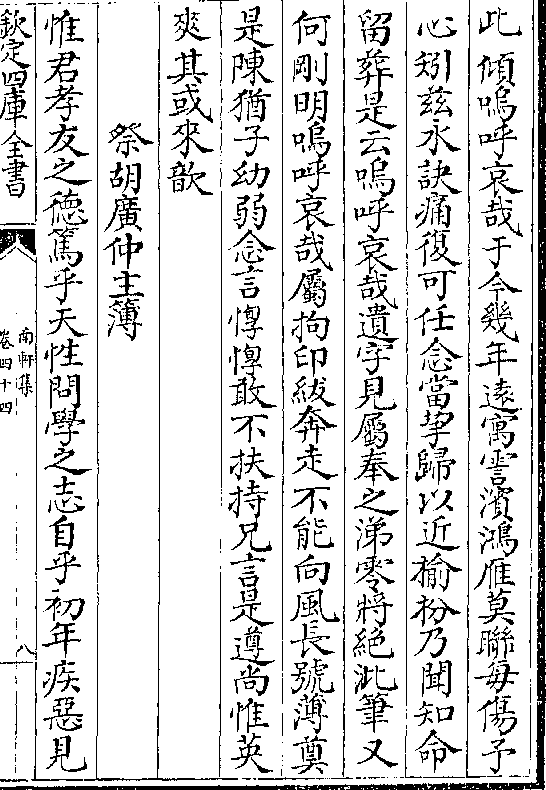 此傾嗚呼哀哉于今幾年遠寓霅濱鴻雁莫聯每傷予
心矧兹永訣痛復可任念當挈歸以近榆枌乃聞知命
留葬是云嗚呼哀哉遺字見屬奉之涕零將絶泚筆又
何剛明嗚呼哀哉屬拘印紱奔走不能向風長號薄奠
是陳猶子幼弱念言惸惸敢不扶持兄言是遵尚惟英
爽其或來歆
祭胡廣仲主簿
惟君孝友之德篤乎天性問學之志自乎初年疾惡見
欽定四庫全書
南軒集
卷四十四
八